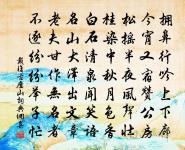 擁鼻行吟上下廊
今宵又宿贊公房
松搖半夜風聲壯
桂染中秋月色香
白石清泉聞笑語
名山大澤出文章
老夫甘作無名者
不逐紛紛舉子忙
戴復古廬山